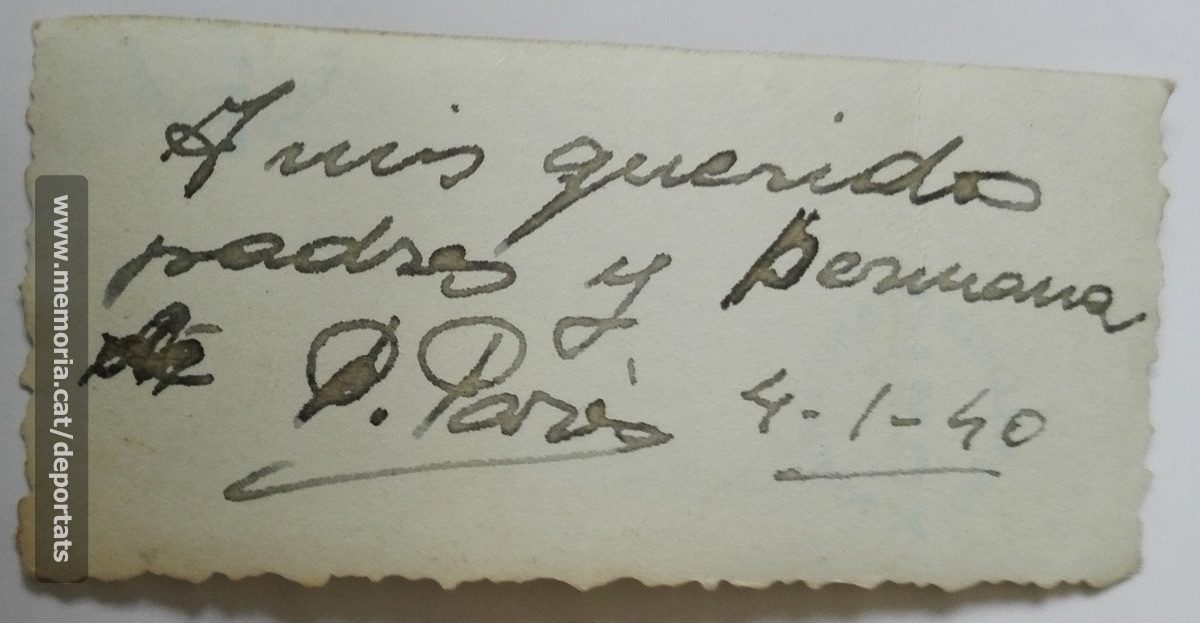 A mis queridos
padres y hermana
P. Parés 4-1-40
www.memoria.cat/deportats